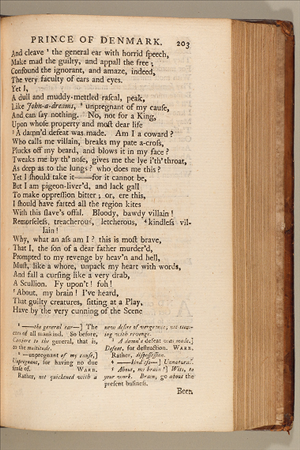 PRINCE OF DENMARK. 203
And cleave ˢ the general ear with horrid ſpeech,
Make mad the guilty, and appall the free;
Confound the ignorant, and amaze, indeed,
The very faculty of ears and eyes.
Yet I,
A dull and muddy-mettled raſcal, peak,
Like John-a-dreams, ᵗ unpregnant of my cauſe,
And can ſay nothing. No, not for a King,
Upon whoſe property and moſt dear life
A damn'd defeat was made. Am I a coward?
Who calls me villain, breaks my pate a-croſs,
Plucks off my beard, and blows it in my face?
Tweaks me by th' noſe, gives me the lye i'th' throat,
As deep as to the lungs? who does me this?
Yet I ſhould take it——for it cannot be,
But I am pigeon-liver'd, and lack gall
To make oppreſſion bitter; or, ere this,
I ſhould have fatted all the region kites
With this ſlave's offal. Bloody, bawdy villain!
Remorſeleſs, treacherous, letcherous, kindleſs vil-
lain!
Why, what an aſs am I? this is moſt brave,
That I, the ſon of a dear father murder'd,
Prompted to my revenge by heav'n and hell,
Muſt, like a whore, unpack my heart with words,
And fall a curſing like a very drab,
A Scullion. Fy upon't! foh!
About, my brain! I've heard,
That guilty creatures, ſitting at a Play,
Have by the very cunning of the Scene
—the general ear—] The
ears of all mankind. So before,
Caviare to the general, that is,
to the multitude.
—unpregnant of my cauſe,]
Unpregnant, for having no due
ſenſe of. WARB.
Rather, not quickened with a
new deſire of vengeance; not teem-
ing with revenge.
A damn'd defeat was made.]
Defeat, for deſtruction. WARB.
Rather, diſpoſſeſſion.
—kindleſs—] Unnatural.
About, my brain!] Wits, to
your work. Brain, go about the
preſent buſineſs.
Been,